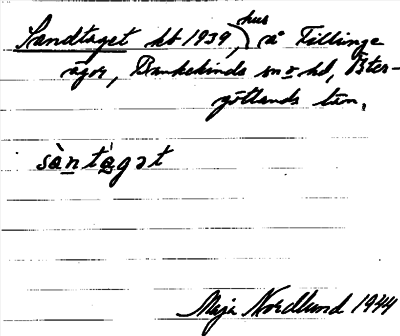 Sandtaget kb 1939, hus å Fillinge
ägor, Bankekinds sn o hd, Öster-
götlands län.
sàntàgət
Maja Nordlund 1944